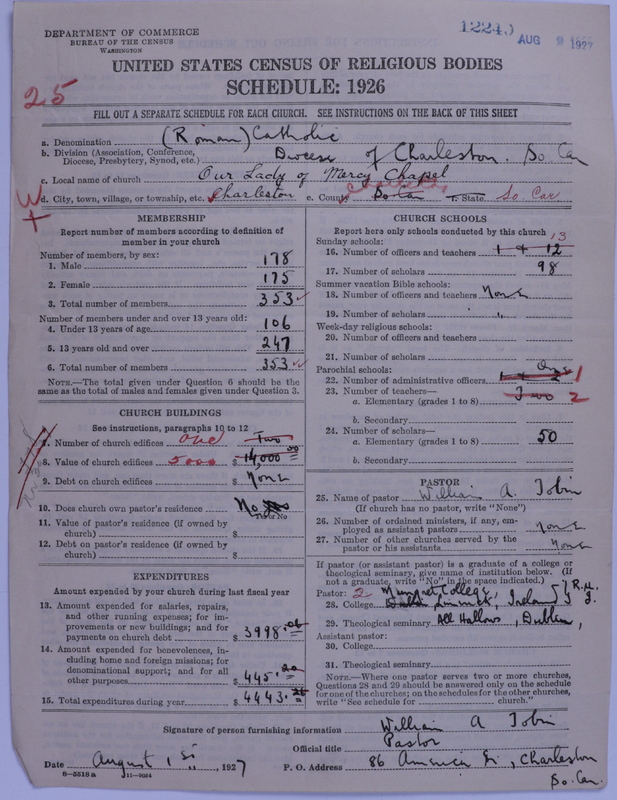 DEPARTMENT OF COMMERCE
BUREAU OF THE CENSUS
WASHINGTON
AUG 9 1927
UNITED STATES CENSUS OF RELIGIOUS BODIES
SCHEDULE: 1926
25
FILL OUT A SEPARATE SCHEDULE FOR EACH CHURCH. SEE INSTRUCTIONS ON THE BACK OF THIS SHEET
a. Denomination (Roman) Catholic
b. Division (Association, Conference, Diocese, Presbytery, Synod, etc.) Diocese of Charleston. So Car
c. Local name of church Our Lady of Mercy Chapel
d. City, town, village, or township, etc. Charleston e. County Charleston So Car f. State So Car
MEMBERSHIP
Report number of members according to definition of
member in your church
Number of members, by sex:
1. Male 178
2. Female 175
3. Total number of members 353
Number of members under and over 13 years old:
4. Under 13 years of age 106
5. 13 years old and over 247
6. Total number of members 353
NOTE.—The total given under Question 6 should be
the same as the total of males and females given under Question 3.
CHURCH BUILDINGS
See instructions, paragraphs 10 to 12
7. Number of church edifices one Two
8. Value of church edifices 5000 $ 14,000 00
9. Debt on church edifices $ None
10. Does church own pastor's residence No
Yes or No
11. Value of pastor's residence (if owned by
church) $
12. Debt on pastor's residence (if owned by
church) $
EXPENDITURES
Amount expended by your church during last fiscal year
13. Amount expended for salaries, repairs,
and other running expenses; for im-
provements or new buildings; and for
payments on church debt $ 3998.06
14. Amount expended for benevolences, in-
cluding home and foreign missions; for
denominational support; and for all
other purposes $ 445.20
15. Total expenditures during year $ 4443.26
CHURCH SCHOOLS
Report here only schools conducted by this church
Sunday schools: 13
16. Number of officers and teachers 1 + 12
17. Number of scholars 98
Summer vacation Bible schools:
18. Number of officers and teachers None
19. Number of scholars "
Week-day religious schools:
20. Number of officers and teachers
21. Number of scholars
Parochial schools: One
22. Number of administrative officers 1 + 2 1
23. Number of teachers—
a. Elementary (grades 1 to 8) Two 2
b. Secondary
24. Number of scholars—
a. Elementary (grades 1 to 8) 50
b. Secondary
PASTOR
25. Name of pastor William A. Tobin
(If church has no pastor, write "None")
26. Number of ordained ministers, if any, em-
ployed as assistant pastors None
27. Number of other churches served by the
pastor or his assistants None
If pastor (or assistant pastor) is a graduate of a college or
theological seminary, give name of institution below. (If
not a graduate, write "No" in the space indicated.)
Pastor: 2 Mungret College,
28. College Limerick, Ireland
29. Theological seminary All Hallows, Dublin,
Assistant pastor:
30. College
31. Theological seminary
NOTE.—Where one pastor serves two or more churches,
Questions 28 and 29 should be answered only on the schedule
for one of the churches; on the schedules for the other churches,
write "See schedule for church."
Signature of person furnishing information William A Tobin
Official title Pastor
Date August 1st, 1927 P. O. Address 86 America St., Charleston
So. Car.
8—5518a 11—9054